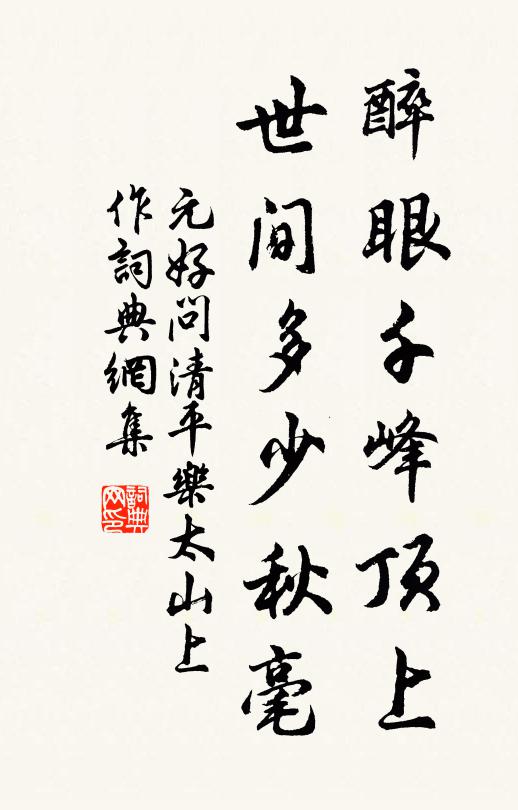 醉眼千峰顶上
世间多少秋毫
元好问清平樂太山上
作詞典網集
詞典网印